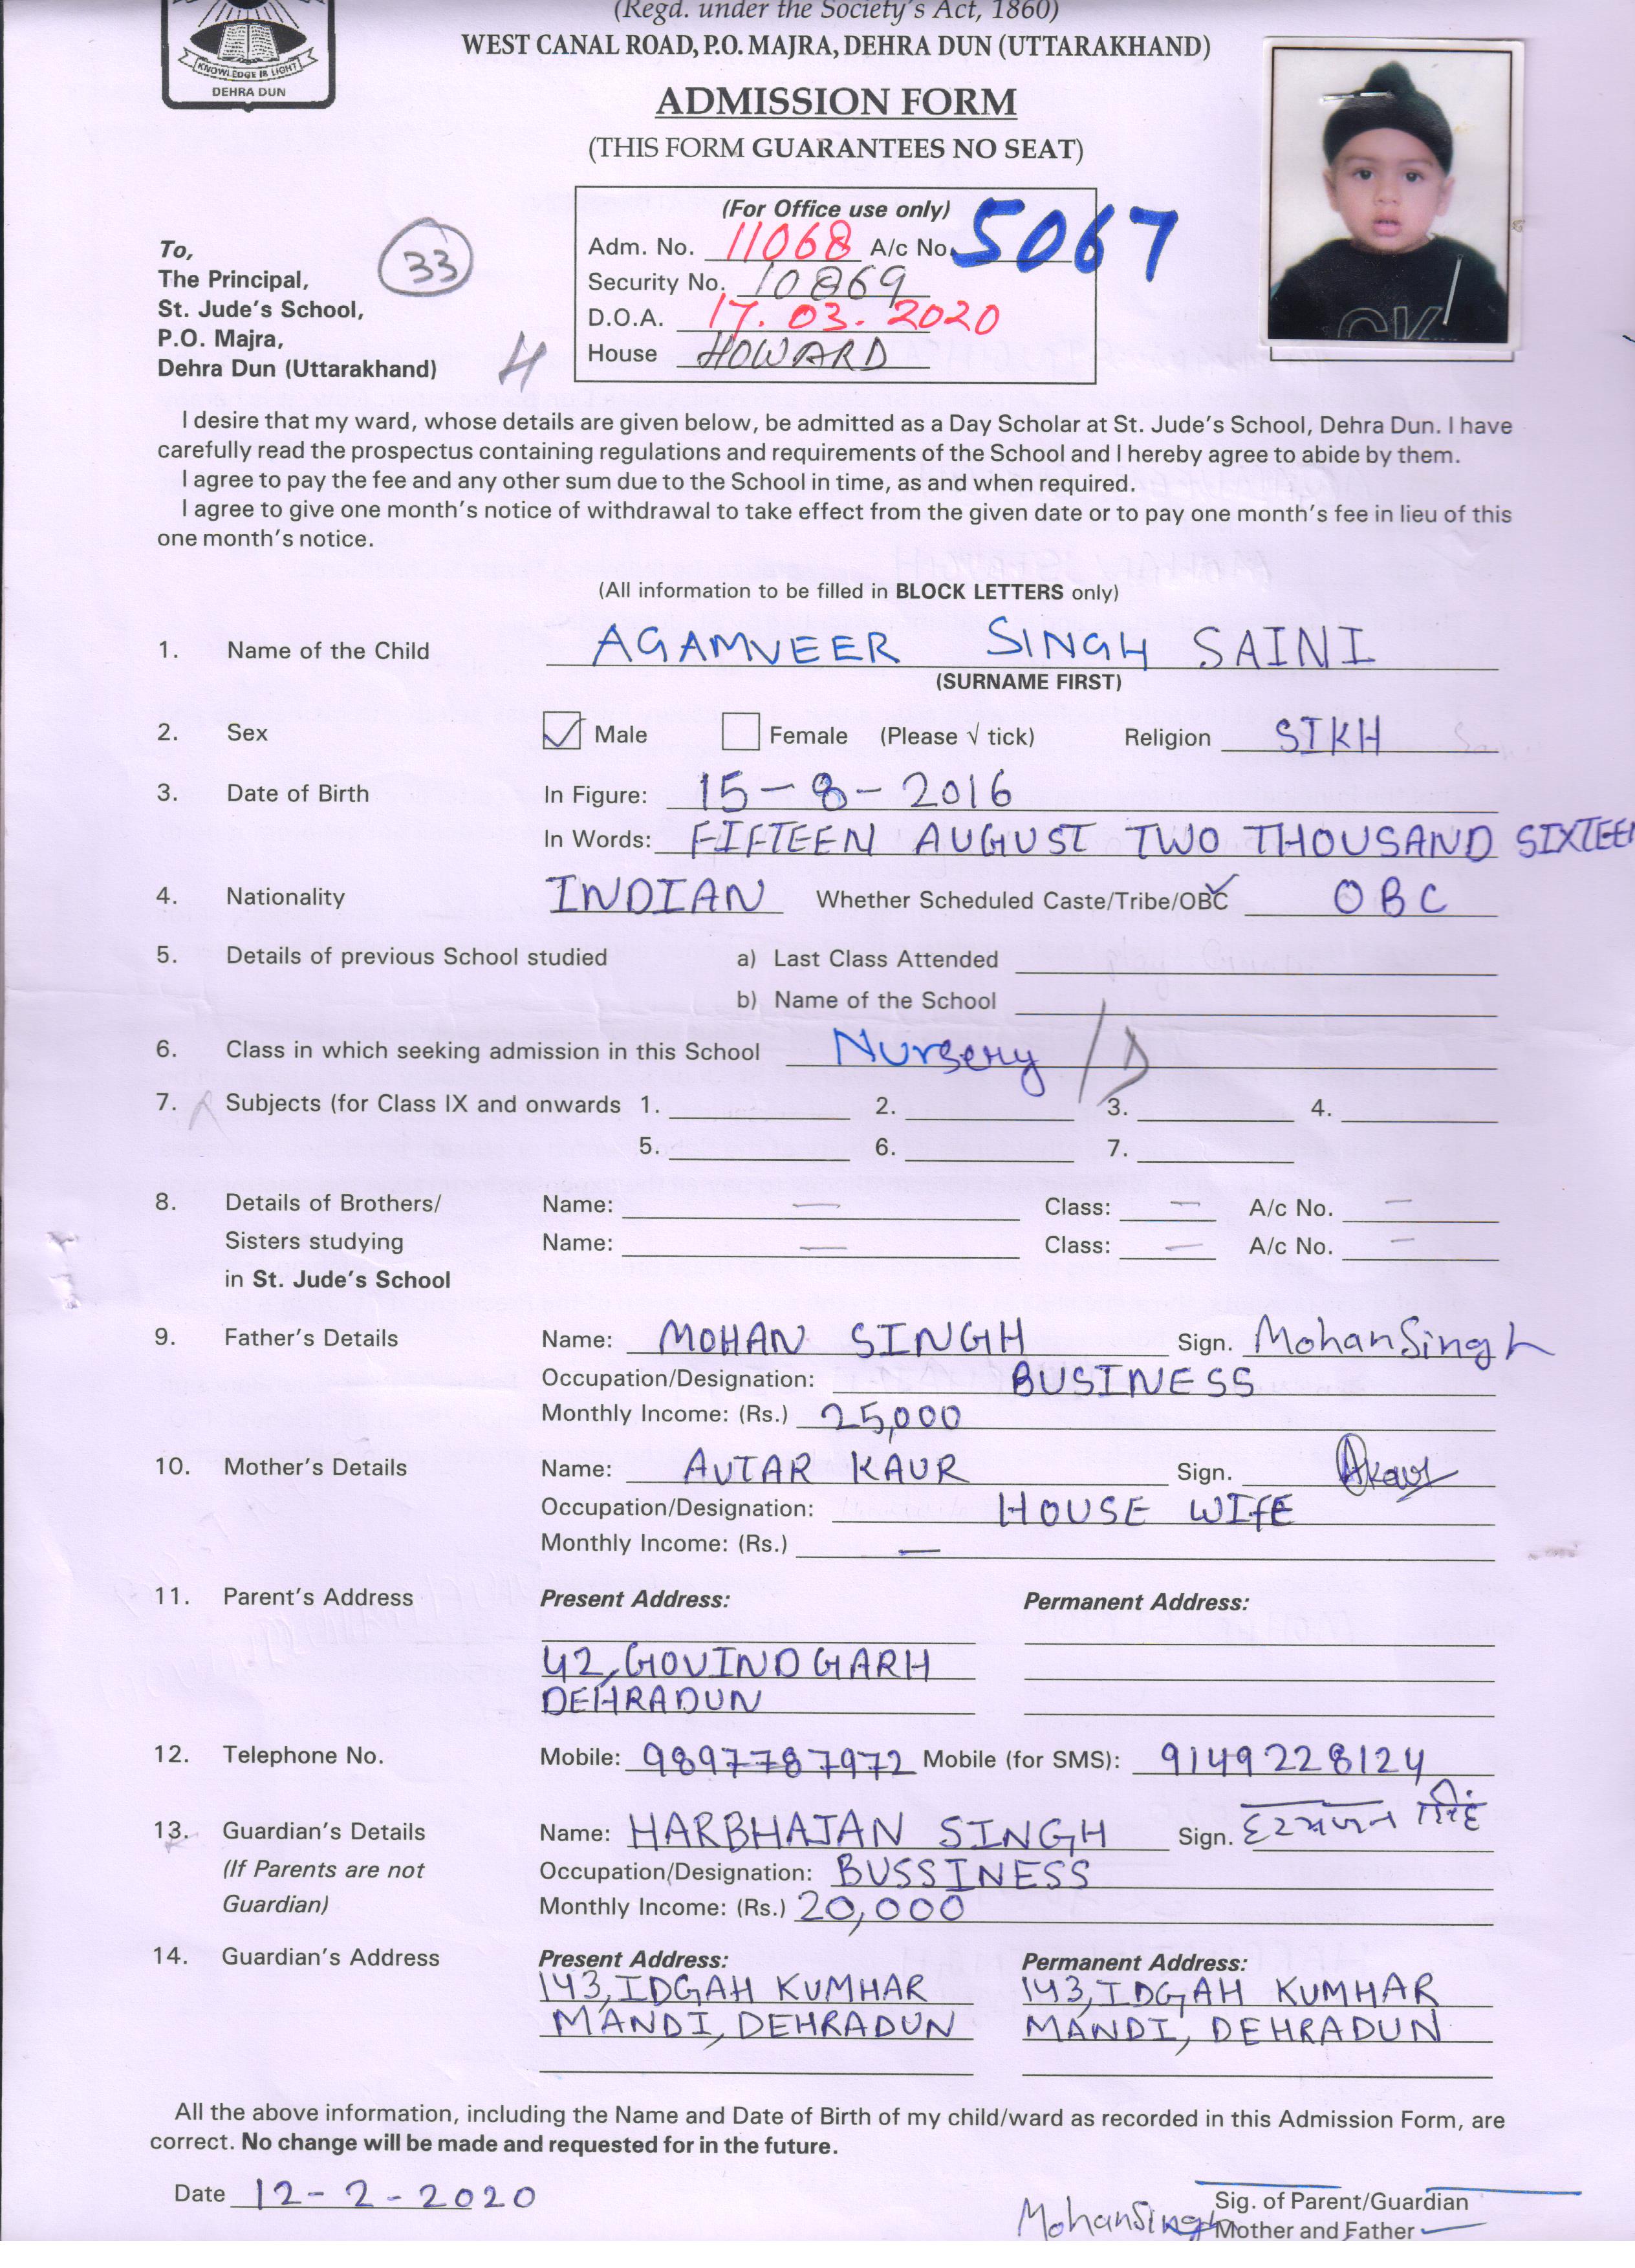 (Regd. under the Society's Act, 1860)
WEST CANAL ROAD, P.O. MAJRA, DEHRA DUN (UTTARAKHAND)
KNOWLEDGE IS LIGHT
DEHRA DUN
ADMISSION FORM
(THIS FORM GUARANTEES NO SEAT)
(For Office use only)
Adm. No. 11068 A/c No. 5067
Security No. 10869
D.O.A. 17.03.2020
House HOWARD
33
To,
The Principal,
St. Jude's School,
P.O. Majra,
Dehra Dun (Uttarakhand)
H
I desire that my ward, whose details are given below, be admitted as a Day Scholar at St. Jude's School, Dehra Dun. I have
carefully read the prospectus containing regulations and requirements of the School and I hereby agree to abide by them.
I agree to pay the fee and any other sum due to the School in time, as and when required.
I agree to give one month's notice of withdrawal to take effect from the given date or to pay one month's fee in lieu of this
one month's notice.
(All information to be filled in BLOCK LETTERS only)
1. Name of the Child AGAMVEER SINGH SAINI
(SURNAME FIRST)
2. Sex Male Female (Please √ tick) Religion SIKH
3. Date of Birth In Figure: 15-8-2016
In Words: FIFTEEN AUGUST TWO THOUSAND SIXTEEN
4. Nationality INDIAN Whether Scheduled Caste/Tribe/OBC OBC
5. Details of previous School studied a) Last Class Attended
b) Name of the School
6. Class in which seeking admission in this School Nursery / D
7. Subjects (for Class IX and onwards 1. 2. 3. 4.
5. 6. 7.
8. Details of Brothers/ Name: — Class: — A/c No. —
Sisters studying Name: — Class: — A/c No. —
in St. Jude's School
9. Father's Details Name: MOHAN SINGH Sign. MohanSingh
Occupation/Designation: BUSINESS
Monthly Income: (Rs.) 25,000
10. Mother's Details Name: AUTAR KAUR Sign. Akaur
Occupation/Designation: HOUSE WIFE
Monthly Income: (Rs.) —
11. Parent's Address Present Address: Permanent Address:
42, GOVIND GARH
DEHRADUN
12. Telephone No. Mobile: 9897787972 Mobile (for SMS): 9149228124
13. Guardian's Details Name: HARBHAJAN SINGH Sign. हरभजन सिंह
(If Parents are not Occupation/Designation: BUSSINESS
Guardian) Monthly Income: (Rs.) 20,000
14. Guardian's Address Present Address: Permanent Address:
143, IDGAH KUMHAR 143, IDGAH KUMHAR
MANDI, DEHRADUN MANDI, DEHRADUN
All the above information, including the Name and Date of Birth of my child/ward as recorded in this Admission Form, are
correct. No change will be made and requested for in the future.
Date 12-2-2020
Sig. of Parent/Guardian
MohanSingh Mother and Father